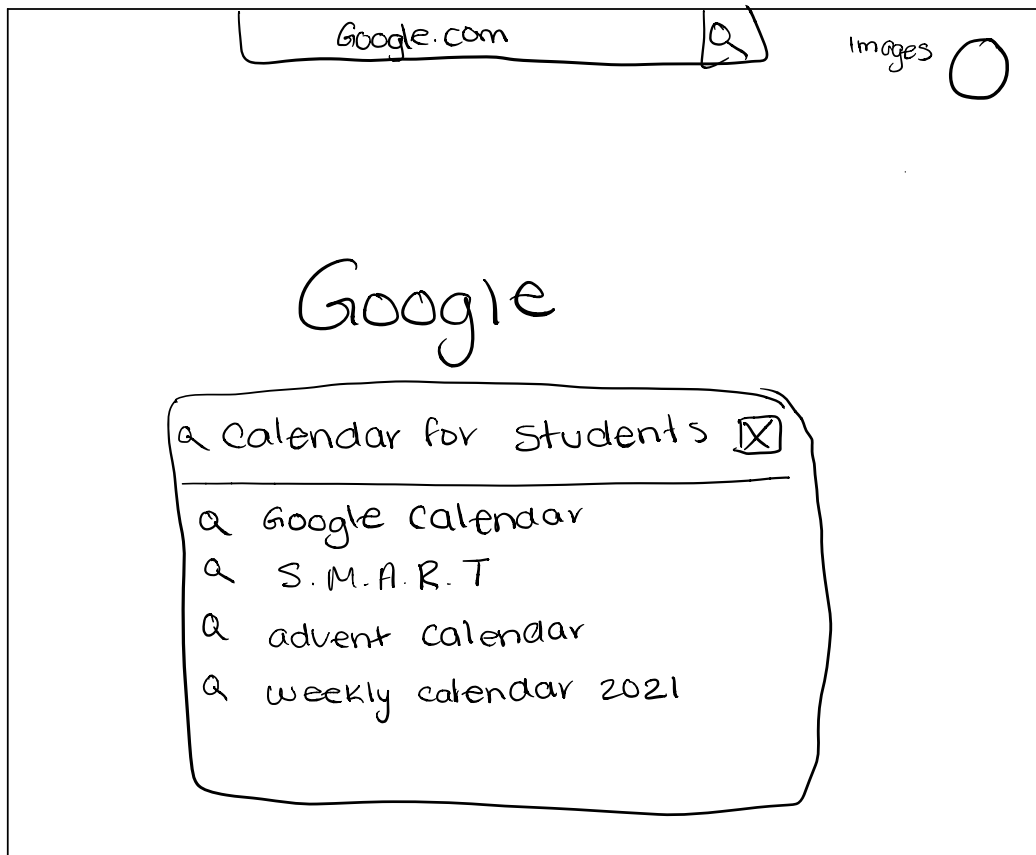 Google.com
Images
Google
calendar for students
Google calendar
S.M.A.R.T
advent calendar
weekly calendar 2021